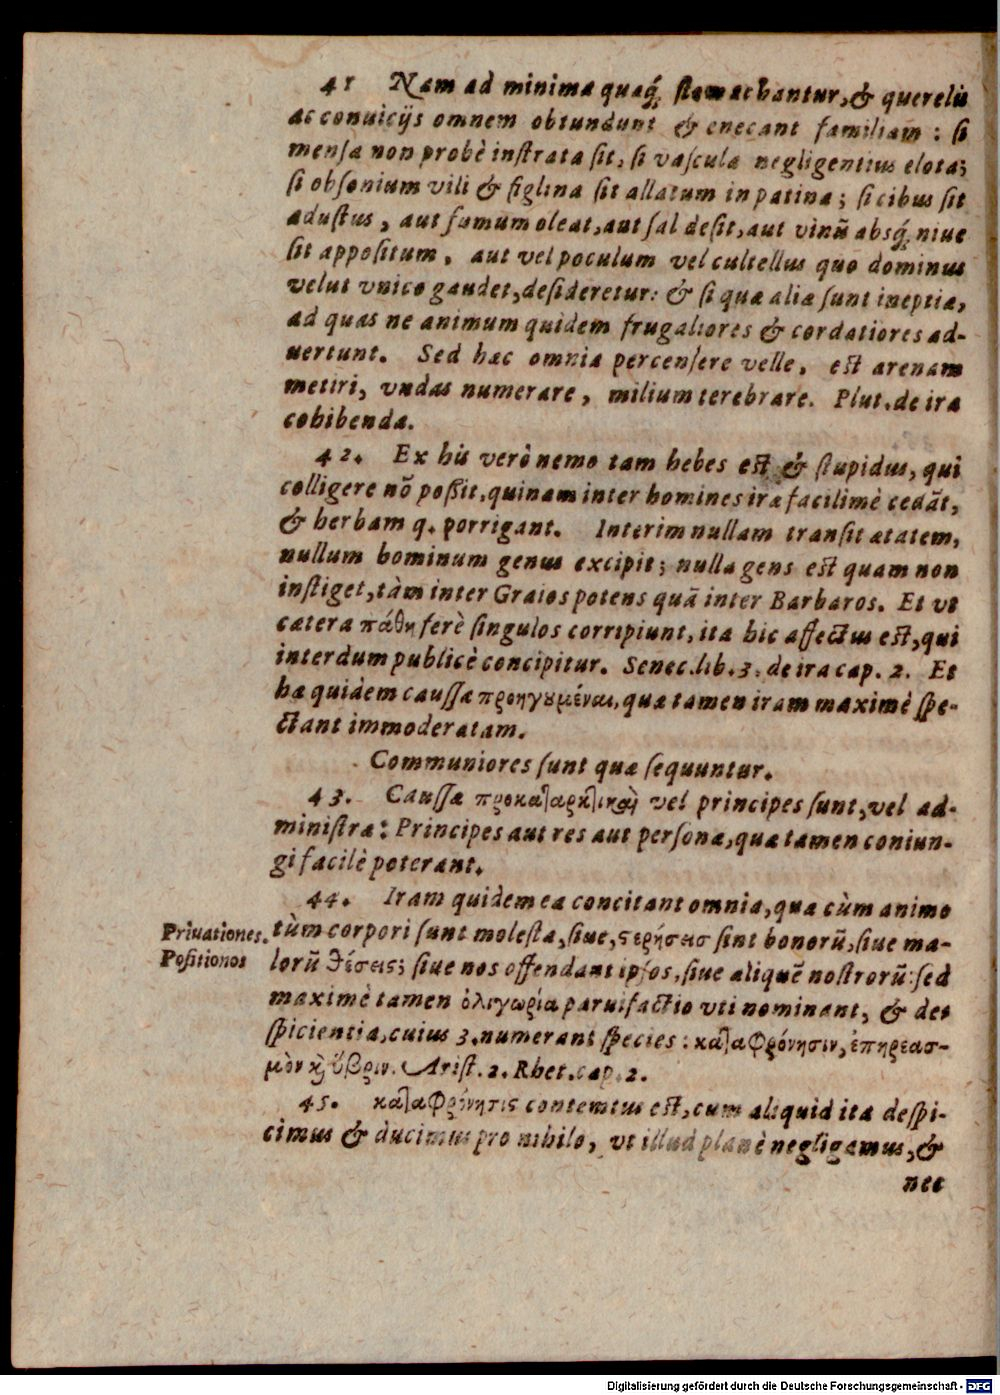 41 Nam ad minima quaq́; ſtomachantur, & querelis
ac conuicijs omnem obtundunt & enecant familiam : ſi
menſa non probè inſtrata ſit, ſi vaſcula negligentius elota;
ſi obſonium vili & figlina ſit allatum in patina ; ſi cibus ſit
aduſtus, aut fumum oleat, aut ſal deſit, aut vinũ absq́; niue
ſit appoſitum, aut vel poculum vel cultellus quo dominus
velut vnico gaudet, deſideretur: & ſi quæ aliæ ſunt ineptiæ,
ad quas ne animum quidem frugaliores & cordatiores ad-
uertunt. Sed hæc omnia percenſere velle, eſt arenam
metiri, vndas numerare, milium terebrare. Plut. de ira
cohibenda.
42. Ex his verò nemo tam hebes eſt & ſtupidus, qui
colligere nō poſſit, quinam inter homines iræ facilimè cedāt,
& herbam q. porrigant. Interim nullam tranſit ætatem,
nullum hominum genus excipit; nulla gens eſt quam non
inſtiget, tàm inter Graios potens quā inter Barbaros. Et vt
cætera πάθη ferè ſingulos corripiunt, ita hic affectus eſt, qui
interdum publicè concipitur. Senec. lib. 3. de ira cap. 2. Et
hæ quidem cauſſæ προηγȣμέναι, quæ tamen iram maximè ſpe-
ctant immoderatam.
Communiores ſunt quæ ſequuntur.
43. Cauſſæ προκαταρκτικαὶ vel principes ſunt, vel ad-
miniſtræ: Principes aut res aut perſonæ, quæ tamen coniun-
gi facilè poterant.
44. Iram quidem ea concitant omnia, quæ cùm animo
Priuationes. tùm corpori ſunt moleſta, ſiue, ςερήσεισ ſint bonorũ, ſiue ma-
Poſitionos lorũ θέσεις; ſiue nos offendant ipſos, ſiue aliquẽ noſtrorũ: ſed
maximè tamen ὀλιγωρία paruifactio vti nominant, & des
ſpicientia, cuius 3. numerant ſpecies : καταφρόνησιν, ἐπηρεασ-
μὸν κὶ ὕβριν. Ariſt. 2. Rhet. cap. 2.
45. καταφρόνησις contemtus eſt, cum aliquid ita deſpi-
cimus & ducimus pro nihilo, vt illud planè negligamus, &
nec
Digitalisierung gefördert durch die Deutsche Forschungsgemeinschaft - DFG